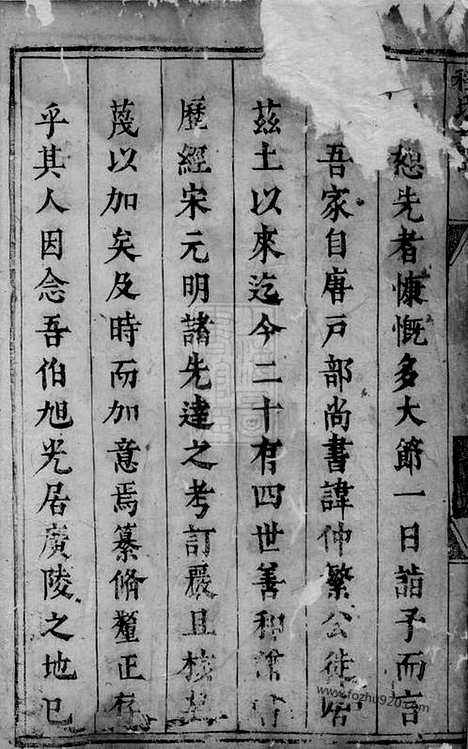 愻先者慷慨多大節一日詣予而言
吾家自唐戸部尚書諱仲繁公徙居
茲土以來迄今二十有四世善和
歷經宋元明諸先達之考訂嚴且核
蔑以加矣及時而加意焉纂脩釐正存
乎其人因念吾伯旭光居廣陵之地已
www.fozhu920.com